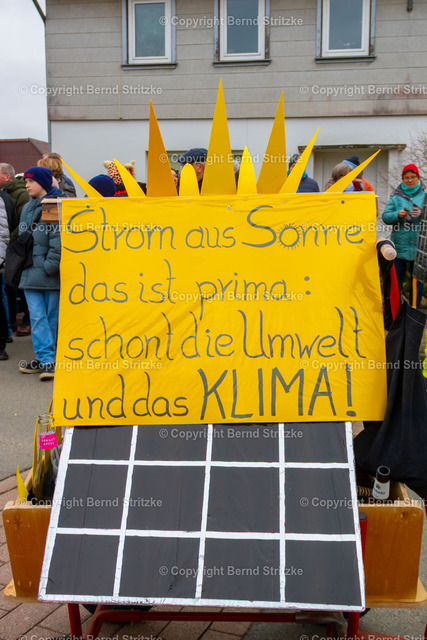 Strom aus Sonne
das ist prima:
schont die Umwelt
und das KLIMA!
Copyright Bernd Stritzke